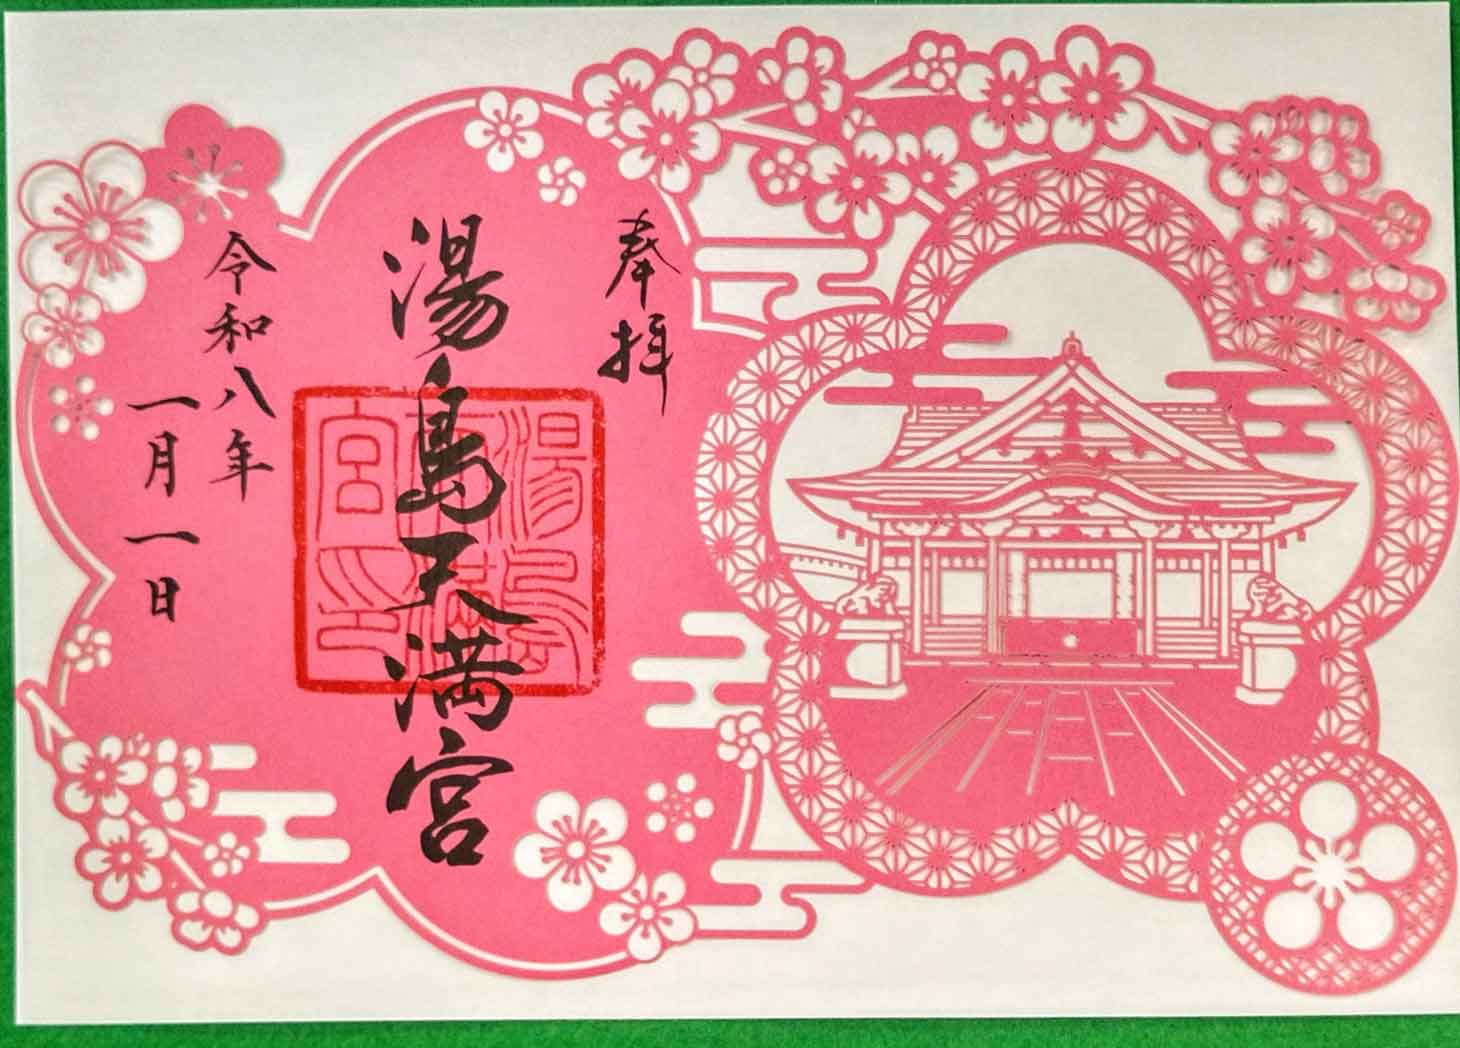 奉拝
湯島天満宮
湯島
天満
宮印
令和八年
一月一日